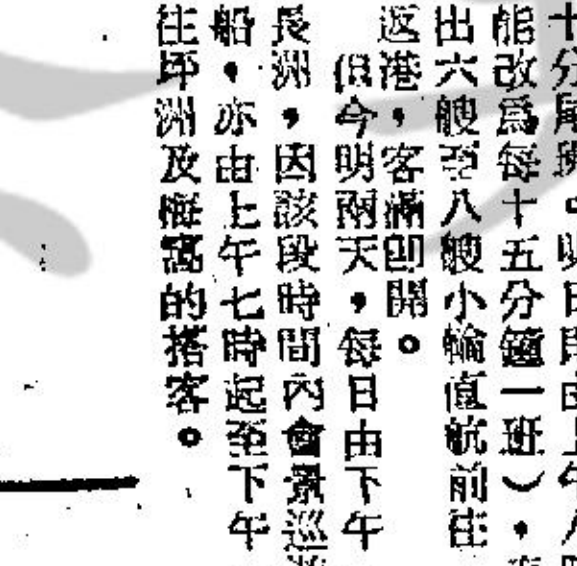 十分尾班。明日由上午八時
能改爲每十五分鐘一班），
出六艘至八艘小輪直航前往
返港，客滿即開。
但今明兩天，每日由下午
長洲，因該段時間內會景巡
船，亦由上午七時起至下午
往坪洲及梅窩的搭客。